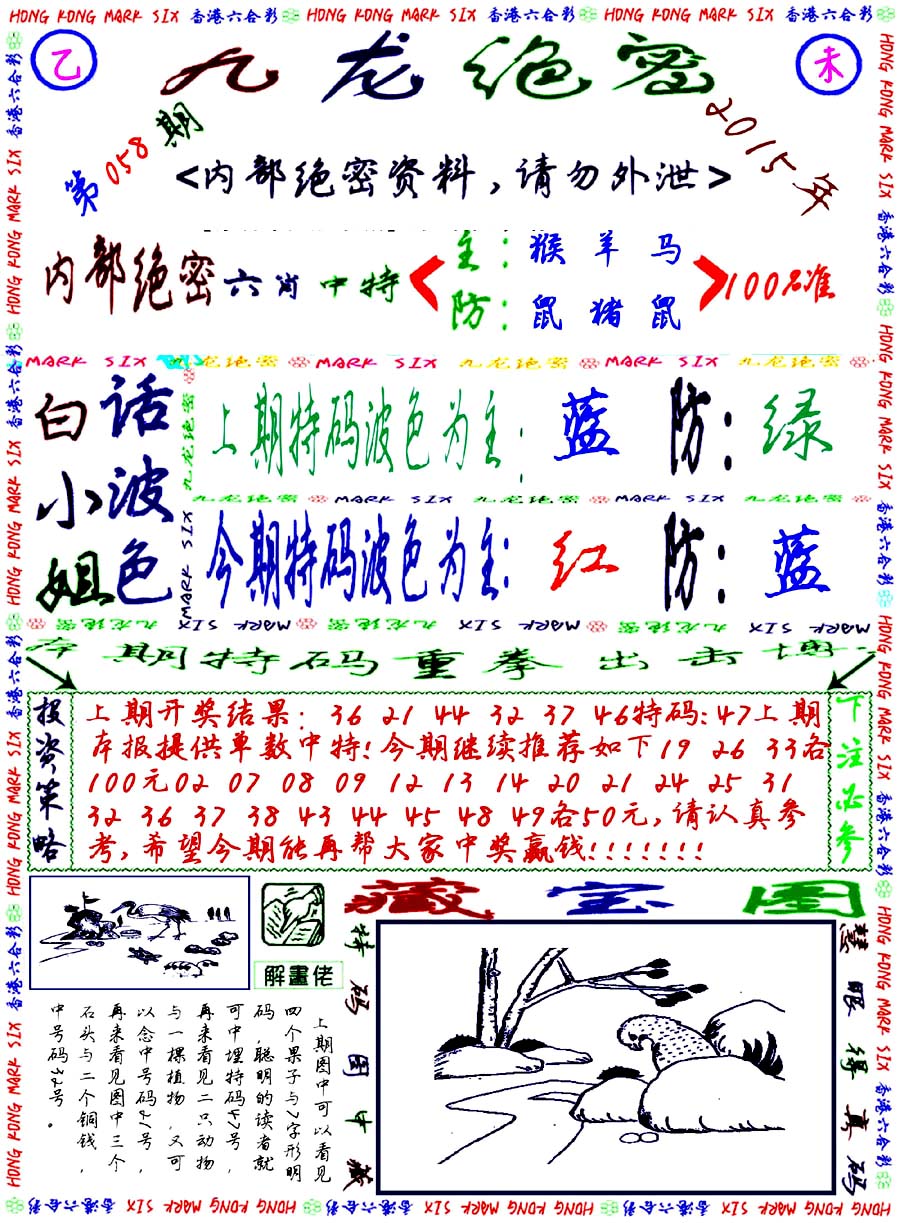 HONG KONG MARK SIX 香港六合彩 HONG KONG MARK SIX 香港六合彩 HONG KONG MARK SIX 香港六合彩
乙 九龙绝密 未
第058期
2015年
<内部绝密资料,请勿外泄>
内部绝密六肖中特
主:猴羊马
防:鼠猪鼠
100%准
MARK SIX 九龙绝密 MARK SIX 九龙绝密 MARK SIX 九龙绝密
白话小波姐色
上期特码波色为主: 蓝 防: 绿
九龙绝密 MARK SIX 九龙绝密 MARK SIX 九龙绝密
今期特码波色为主: 红 防: 蓝
MARK SIX 九龙绝密 MARK SIX 九龙绝密 MARK SIX 九龙绝密
本期特码重拳出击博
投资策略
上期开奖结果: 36 21 44 32 37 46特码:47上期
本报提供单数中特!今期继续推荐如下19 26 33各
100元02 07 08 09 12 13 14 20 21 24 25 31
32 36 37 38 43 44 45 48 49各50元,请认真参
考,希望今期能再帮大家中奖赢钱!!!!!!!
下注必参
藏宝图
解畫佬
上期图中可以看见
四个果子与7字形明
码,聪明的读者就
可中埋特码47号,
再来看见二只动物
与一棵植物,又可
以念中号码21号,
再来看见图中三个
石头与二个铜钱,
中号码32号。
特码图中藏
慧眼得真码
HONG KONG MARK SIX 香港六合彩 HONG KONG MARK SIX 香港六合彩 HONG KONG MARK SIX 香港六合彩